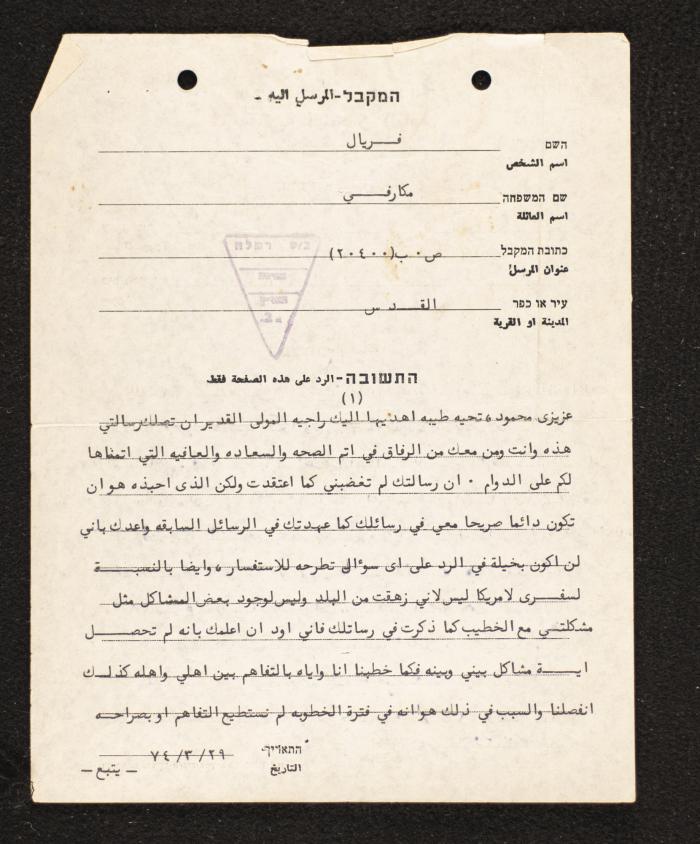 המקבל-المرسل اليه -
השם فــريال
اسم الشخص
שם המשפחה مكارفــي
اسم العائلة
כתובת המקבל ص ٠ ب (٢٠٤٠٠)
عنوان المرسل
ב/ס רמלה
עיר או כפר القــدس
المدينة او القرية
התשובה-الرد على هذه الصفحة فقط
(١)
عزيزى محمود ، تحيه طيبه اهديها اليك راجيه المولى القدير ان تصلك رسالتي
هذه وانت ومن معك من الرفاق في اتم الصحه والسعاده والعافيه التي اتمناها
لكم على الدوام ٠ ان رسالتك لم تغضبني كما اعتقدت ولكن الذى احبذه هو ان
تكون دائما صريحا معي في رسائلك كما عهدتك في الرسائل السابقه واعدك باني
لن اكون بخيلة في الرد على اى سوءال تطرحه للاستفسار ، وايضا بالنسبــة
لسفرى لامريكا ليس لاني زهقت من البلد وليس لوجود بعض المشاكل مثل
مشكلتــي مع الخطيب كما ذكرت في رسالتك فاني اود ان اعلمك بانه لم تحصــل
ايــة مشاكل بيني وبينه فكما خطبنا انا واياه بالتفاهم بين اهلي واهله كذلــك
انفصلنا والسبب في ذلك هو انه في فترة الخطوبه لم نستطيع التفاهم او بصراحــه
התאריך ٧٤/٣/٢٩
التاريخ
– يتبع –